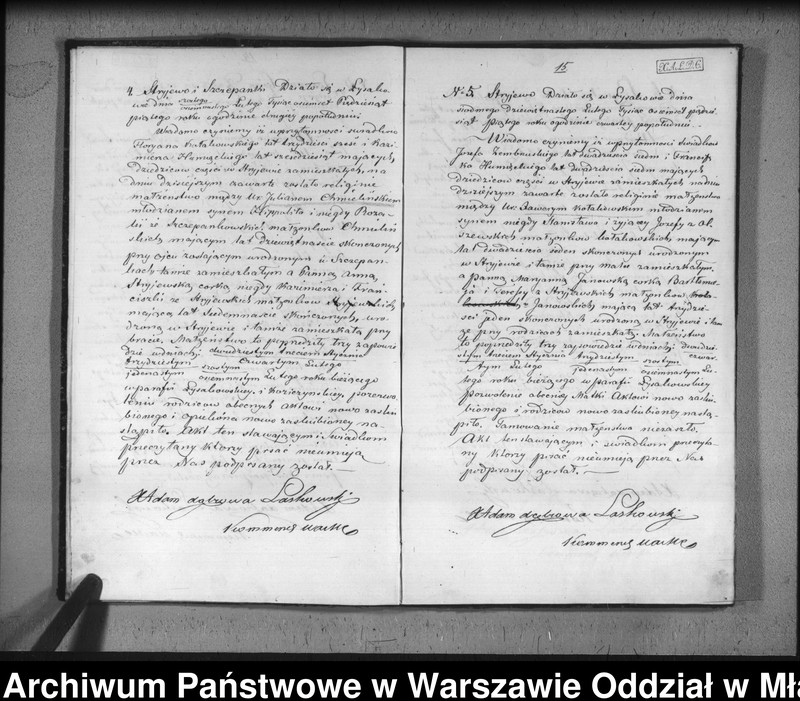 4. Stryjewo i Szczepanki Działo się w Łysako
wie dnia ósmego Lutego Tysiąc osiemset Pięćdziesiąt
piątego roku o godzinie drugiej popołudniu
Wiadomo czynimy iż w przytomności świadków
Floryana Kołakowskiego lat trzydzieści sześć i Kazi
mierza Humięckiego lat sześćdziesiąt mających,
Dziedziców części w Stryjewie zamieszkałych, na
dniu dzisiejszym zawarte zostało religijne
małżeństwo między Ur. Julianem Chmielińskiem
młodzianem synem Hippolita i niegdy Roza
lii ze Szczepankowskich małżonków Chmieliń
skich mającym lat dziewiętnaście skończonych
przy ojcu zostającym urodzonym w Szczepan
kach tamże zamieszkałym a Panną Anną
Stryjewską córką niegdy Kazimierza i Fran
ciszki ze Stryjewskich małżonków Stryjewskich
mającą lat siedemnaście skończonych, uro
dzoną w Stryjewie i tamże zamieszkałą przy
bracie. Małżeństwo to poprzedziły trzy zapowie
dzie w dniach dwudziestym trzecim Stycznia
trzydziestym czwartym Lutego
jedenastym ósmemnastym Lutego roku bieżącego
w parafii Łysakowskiej, i pozwo
lenie rodziców obecnych Aktowi nowo zaślu
bionego i opiekuna nowo zaślubionej na
stąpiło. Akt ten stawającym i świadkom
przeczytany którzy pisać nieumieją
przez Nas podpisany został. —
X Adam dąbrowa Laskowski
15
N 5. Stryjewo Działo się w Łysakowie dnia
siódmego Dziewiętnastego Lutego Tysiąc osiemset pięćdzie
siąt piątego roku o godzinie czwartej popołudniu. —
Wiadomo czynimy iż w przytomności świadków
Józefa Zembrzuskiego lat dwadzieścia siedm i Francisz
ka Humięckiego lat dwadzieścia siedm mających
Dziedziców części w Stryjewie zamieszkałych na dniu
dzisiejszym zawarte zostało religijne małżeństwo
między Ur. Xawerym Kołakowskim młodzianem
synem niegdy Stanisława i żyjącej Józefy z Ol
szewskich małżonków Kołakowskich mającym
lat dwadzieścia jeden skończonych urodzonym
w Stryjewie i tamże przy Matce zamieszkałym,
a panną Maryanną Janowską córką Bartłomie
ja i Józefy z Stryjewskich małżonków
Janowskich mającą lat trzydzie
ści jeden skończonych urodzoną w Stryjewie i tam
że przy rodzicach zamieszkałą. Małżeństwo
to poprzedziły trzy zapowiedzie w dniach dwudzie
stym trzecim Stycznia trzydziestym czwar
tym Lutego jedenastym ósmemnastym Lu
tego roku bieżącego w parafii Łysakowskiej
pozwolenie obecnej Matki Aktowi nowo zaślu
bionego i rodziców nowo zaślubionej nastą
piło. Tamowanie małżeństwa niezaszło.
Akt ten stawającym i świadkom przeczyta
ny którzy pisać nieumieją przez Nas
podpisany został. —
X Adam dąbrowa Laskowski
Archiwum Państwowe w Warszawie Oddział w Mła